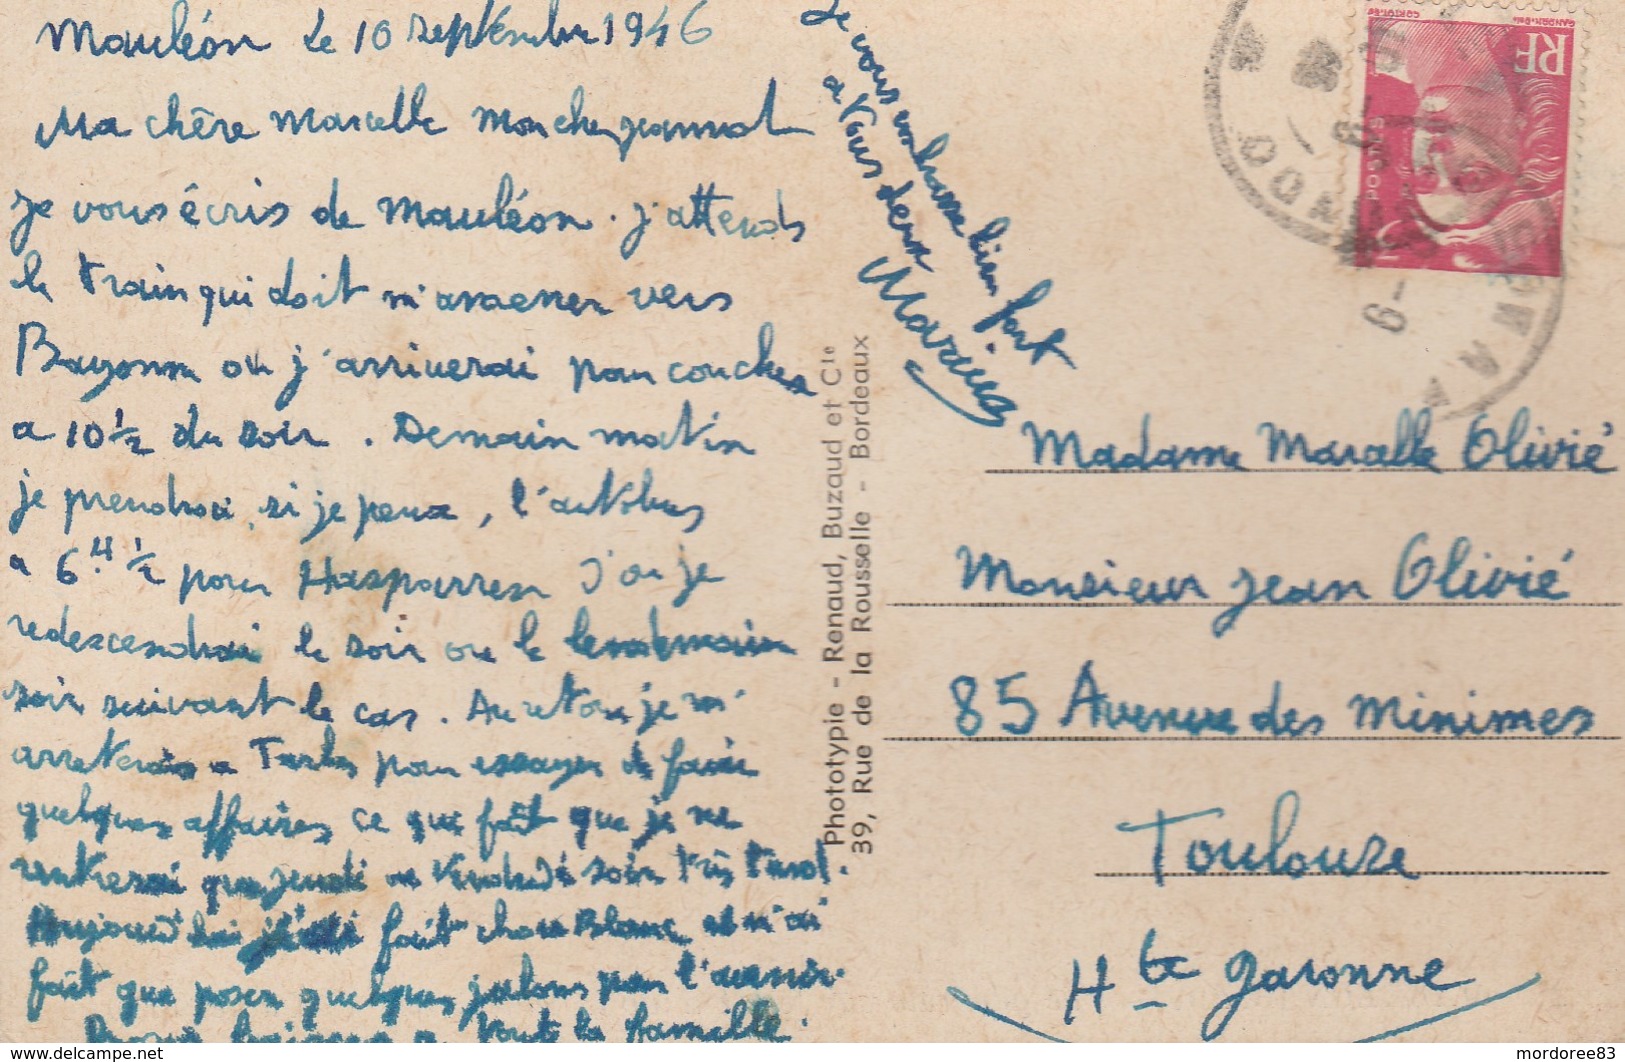 Mauléon le 10 septembre 1946
Ma chère Marcelle Mon cher Jeannot
je vous écris de Mauléon. j'attends
le train qui doit m'amener vers
Bayonne ou j'arriverai pour coucher
a 10 ½ du soir. Demain matin
je prendrai, si je peux, l'autobus
a 6 H ½ pour Hasparren d'ou je
redescendrai le soir ou le lendemain
soir suivant le cas. Au retour je m'
arreterai a Tarbes pour essayer de faire
quelques affaires ce qui fait que je ne
rentrerai que jeudi ou Vendredi soir très tard.
Aujourd'hui j'ai fait chou Blanc et n'ai
fait que poser quelques jalons pour l'avenir.
Bons baisers a toute la famille.
Je vous embrasse bien fort
a tous deux
Phototypie - Renaud, Buzaud et Cie
39, Rue de la Rousselle - Bordeaux
RF
Madame Marcelle Olivié
Monsieur Jean Olivié
85 Avenue des Minimes
Toulouse
Hte Garonne
http://www.delcampe.net
mordoree83